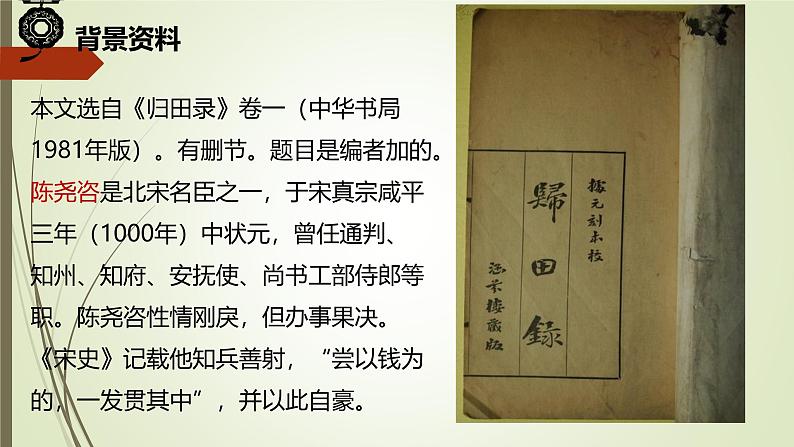 背景资料
本文选自《归田录》卷一（中华书局
1981年版）。有删节。题目是编者加的。
陈尧咨是北宋名臣之一，于宋真宗咸平
三年（1000年）中状元，曾任通判、
知州、知府、安抚使、尚书工部侍郎等
职。陈尧咨性情刚戾，但办事果决。
《宋史》记载他知兵善射，“尝以钱为
的，一发贯其中”，并以此自豪。
據元刻本校
歸田錄
涵芬樓藏版